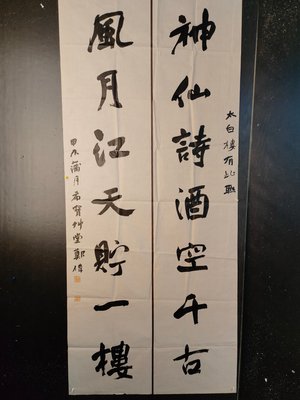 神仙詩酒空千古
太白樓有此聯
風月江天貯一樓
蒲月君賢艸堂鄭偉